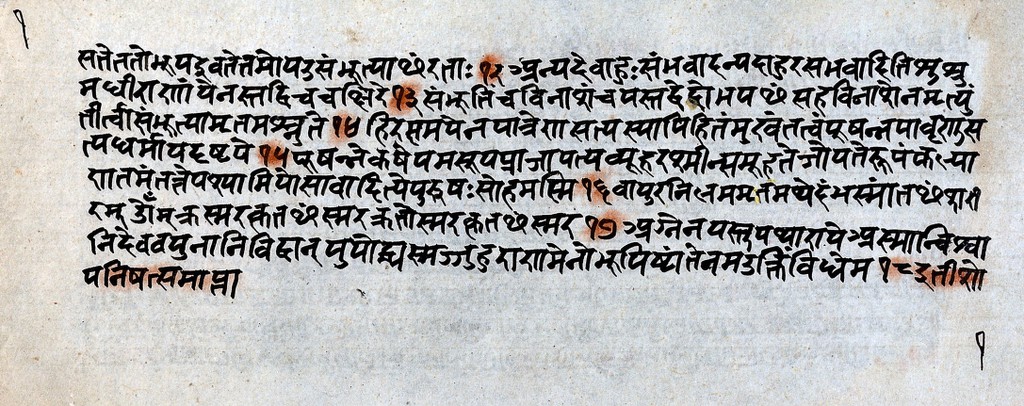 १
सतेततोभूयद्रूवतेतमोयउसंभूत्याꣳरताः १२ अन्यदेवाहुःसंभवादन्यदाहुरसंभवादितिशुश्रु
मधीराणांयेनस्तद्विचचक्षिरे १३ संभूतिंचविनाशंचयस्तद्वेदोभयꣳसहविनाशेनमृत्युं
तीर्त्वासंभूत्यामृतमश्नुते १४ हिरण्मयेनपात्रेणसत्यस्यापिहितंमुखंतत्त्वंपूषन्नपावृणुस
त्यधर्मायदृष्टये १५ पूषन्नेकर्षेयमसूर्यप्राजापत्यव्यूहरश्मीन्समूहतेजोयत्तेरूपंकल्या
णतमंतत्तेपश्यामियोसावादित्येपुरुषःसोहमस्मि १६ वायुरनिलममृतमथेदंभस्मांतꣳशरी
रम् ॐक्रतोस्मरकृतꣳस्मरक्रतोस्मरकृतꣳस्मर १७ अग्नेनयसुपथारायेअस्मान्विश्वा
निदेववयुनानिविद्वान् युयोध्यस्मज्जुहुराणमेनोभूयिष्ठांतेनमउक्तिंविधेम १८ इतीशो
पनिषत्समाप्ता
१